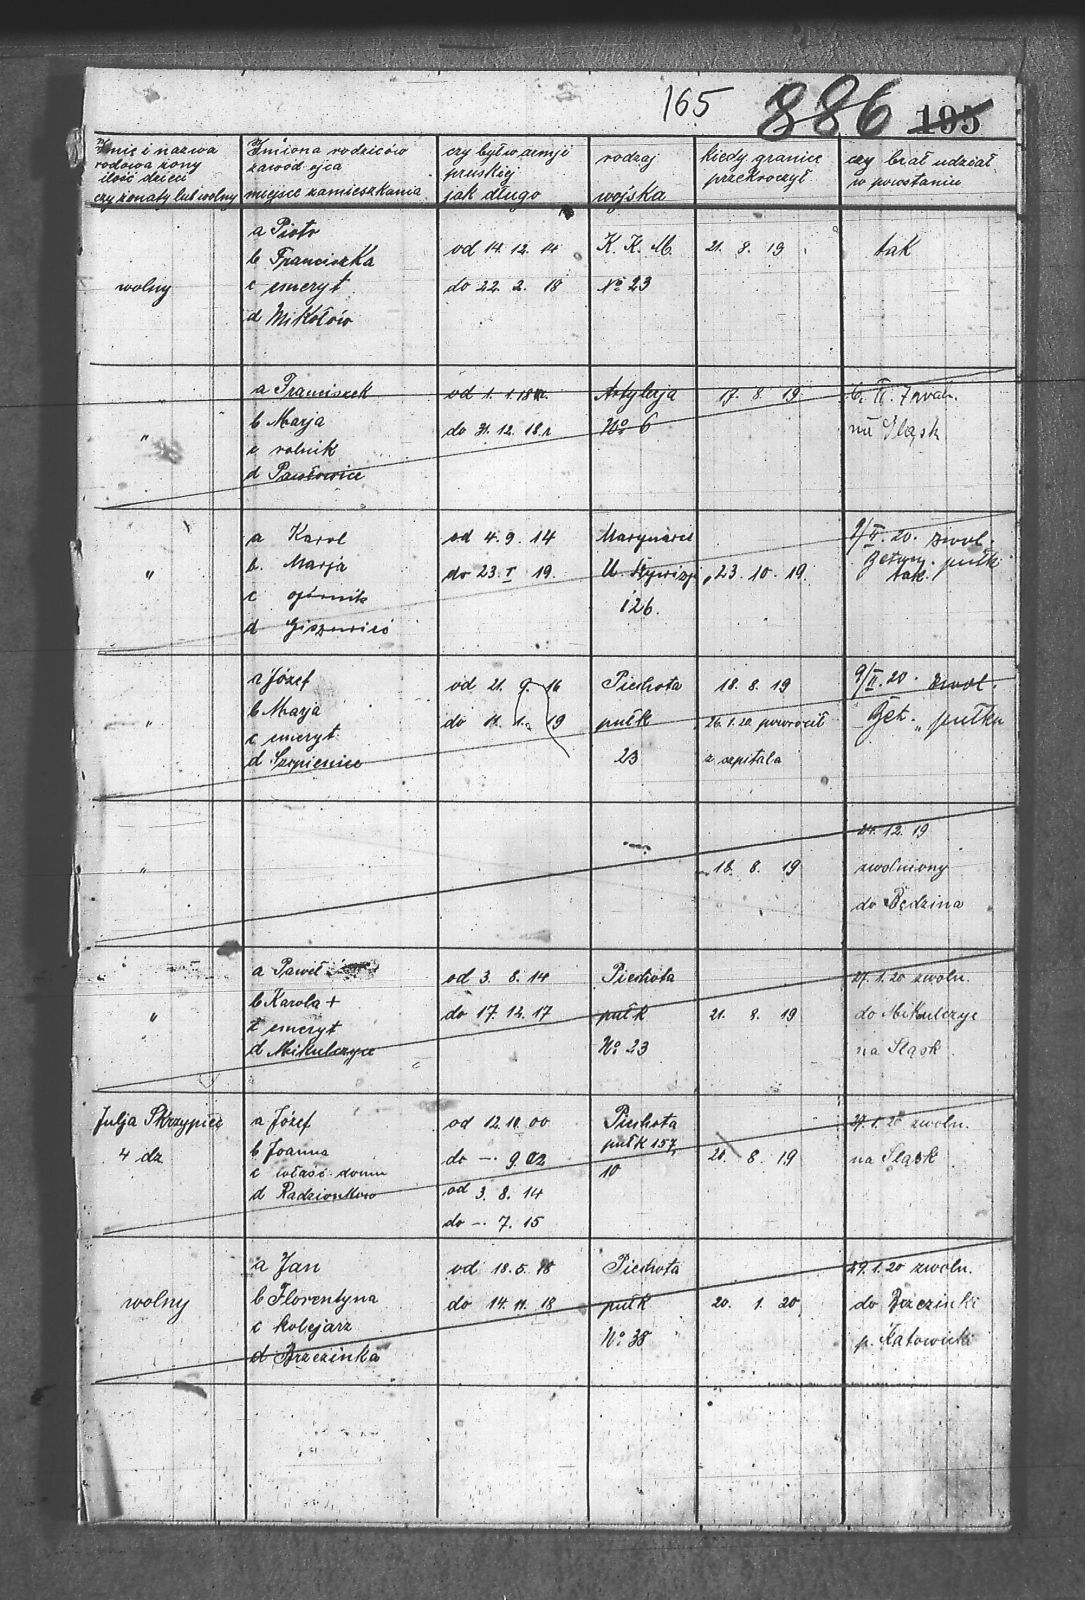 165 886 195
Imię i nazwa
rodowa żony
ilość dzieci
czy żonaty lub wolny
Imiona rodziców
zawód ojca
miejsce zamieszkania
czy był w armji
pruskiej
jak długo
rodzaj
wojska
kiedy granicę
przekroczył
czy brał udział
w powstaniu
wolny
a Piotr
b Franciszka
c emeryt
d Mikołów
od 14. 12. 14
do 22. 2. 18
K. K. M.
No 23
21. 8. 19
tak
"
a Franciszek
b Marja
c rolnik
d Pawłowice
od 1. 1. 18
do 31. 12. 18 r
Artylerja
No 6
17. 8. 19
na Śląsk
"
a Karol
b. Marja
c górnik
d
od 4. 9. 14
do 23. I 19.
126.
23. 10. 19.
9/II. 20. zwol.
pułk
tak.
"
a Józef
b Marja
c emeryt
d Szopienice
od 21. 9. 16
do 11. 1. 19
Piechota
pułk
23
18. 8. 19
26. 1. 20. powrócił
z szpitala
9/II. 20. zwol.
Bet. " pułku
"
18. 8. 19
24. 12. 19
zwolniony
do Będzina
"
a Paweł
b Karola +
c emeryt
d Mikulczyce
od 3. 8. 14
do 17. 12. 17
Piechota
pułk
No 23
21. 8. 19
27. 1. 20 zwoln.
do Mikulczyc
na Śląsk
Julja Skrzypiec
4 dz
a Józef
b Joanna
c właść. domu
d Radzionków
od 12. 10. 00
do -. 9. 02
od 3. 8. 14
do -. 7. 15
Piechota
pułk 157,
10
20. 8. 19
27. 1. 20 zwoln.
na Śląsk
wolny
a Jan
b Florentyna
c kolejarz
d Brzezinka
od 18. 5. 18
do 14. 11. 18
Piechota
pułk
No 38
20. 1. 20
29. 1. 20 zwoln.
do Brzezinki
p. Katowicki